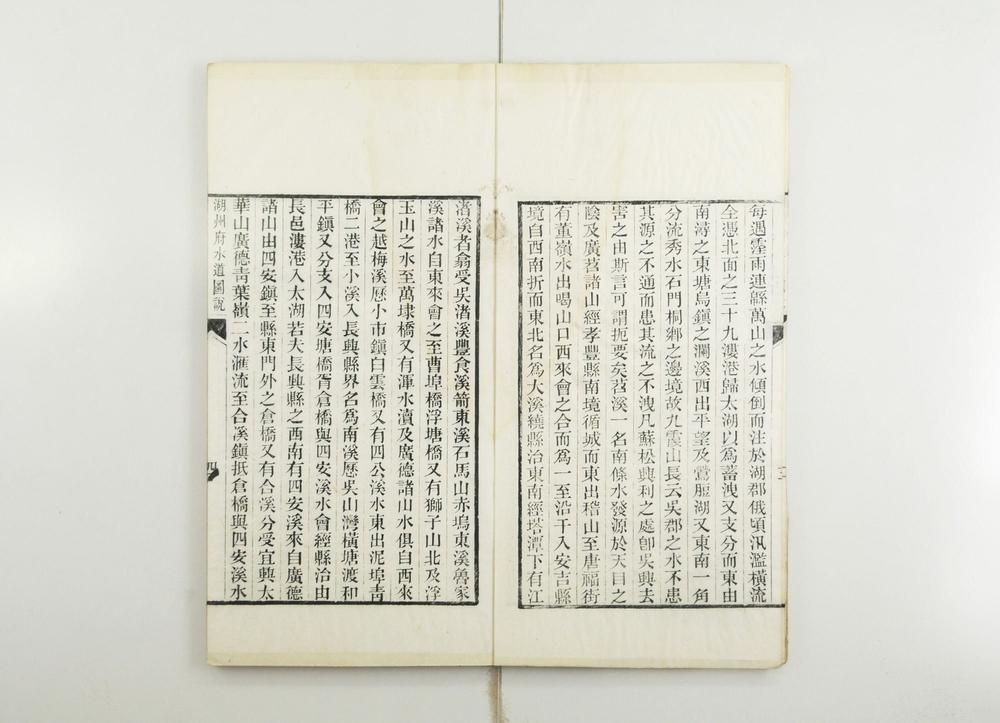 每遇霪雨連緜萬山之水傾倒而注於湖郡俄頃汎濫橫流
全憑北面之三十九漊港歸太湖以爲蓄洩又支分而東由
南潯之東塘烏鎭之瀾溪西出平望及鶯脰湖又東南一角
分流秀水石門桐鄉之邊境故九霞山長云吳郡之水不患
其源之不通而患其流之不洩凡蘇松興利之處卽吳興去
害之由斯言可謂扼要矣苕溪一名南條水發源於天目之
陰及廣苕諸山經孝豐縣南境循城而東出稽山至唐福街
有董嶺水出喝山口西來會之合而爲一至沿干入安吉縣
境自西南折而東北名爲大溪繞縣治東南經塔潭下有江
渚溪者翕受吳渚溪豐食溪箭東溪石馬山赤塢東溪魯家
溪諸水自東來會之至曹埠橋浮塘橋又有獅子山北及浮
玉山之水至萬埭橋又有渾水瀆及廣德諸山水俱自西來
會之越梅溪歷小市鎭白雲橋又有四公溪水東出泥埠靑
橋二港至小溪入長興縣界名爲南溪歷吳山灣橫塘渡和
平鎭又分支入四安塘橋胥倉橋與四安溪水會經縣治由
長邑漊港入太湖若夫長興縣之西南有四安溪來自廣德
諸山由四安鎭至縣東門外之倉橋又有合溪分受宜興太
華山廣德靑葉嶺二水滙流至合溪鎭抵倉橋與四安溪水
湖州府水道圖說
四